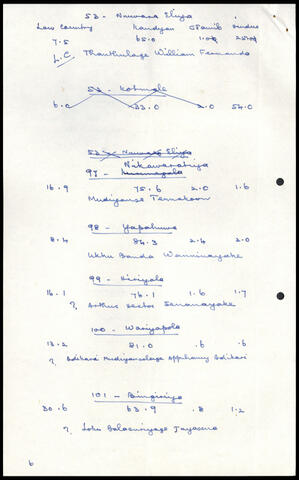 53 - Nuwara Eliya
Low Country Kandyan Tamils Hindus
7.5 65.0 1.0
L.C Thanthulage William Fernando
53 - Kotmale
6.0 33.0 2.0 54.0
53 - Nuwara Eliya
Nikawaratiya
97 -
16.9 75.6 2.0 1.6
Mudiyanse Tennakoon
98 - Yapahuwa
8.4 84.3 2.4 2.0
Ukku Banda Wanninayake
99 - Hiriyala
16.1 76.1 1.6 1.7
? Arthur Hector Senanayake
100 - Wariyapola
13.2 81.0 .6 .6
? Adikari Mudiyanselage Appuhamy Adikari
101 - Bingiriya
30.6 63.9 .8 1.2
? Loku Balasuriyage Jayasena
6